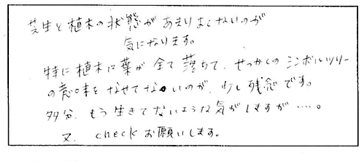 芝生と植木の状態があまりよくないのが
気になります。
特に植木に葉が全て落ちて、せっかくのシンボルツリー
の意味をなせてないのが、少し残念です。
多分、もう生きてないような気がしますが……。
又、checkお願いします。